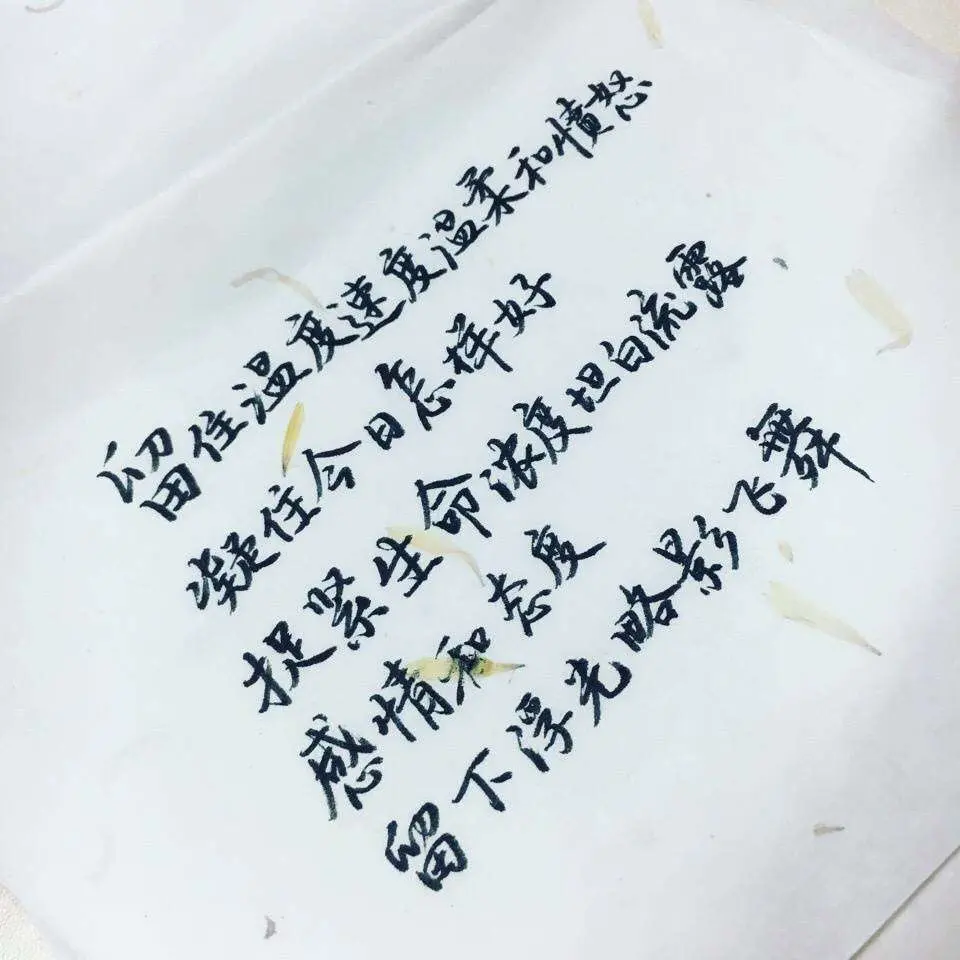 留住温度速度温柔和愤怒
凝住今日怎样好
捉紧生命浓度坦白流露
感情和态度
留下浮光略影飞舞